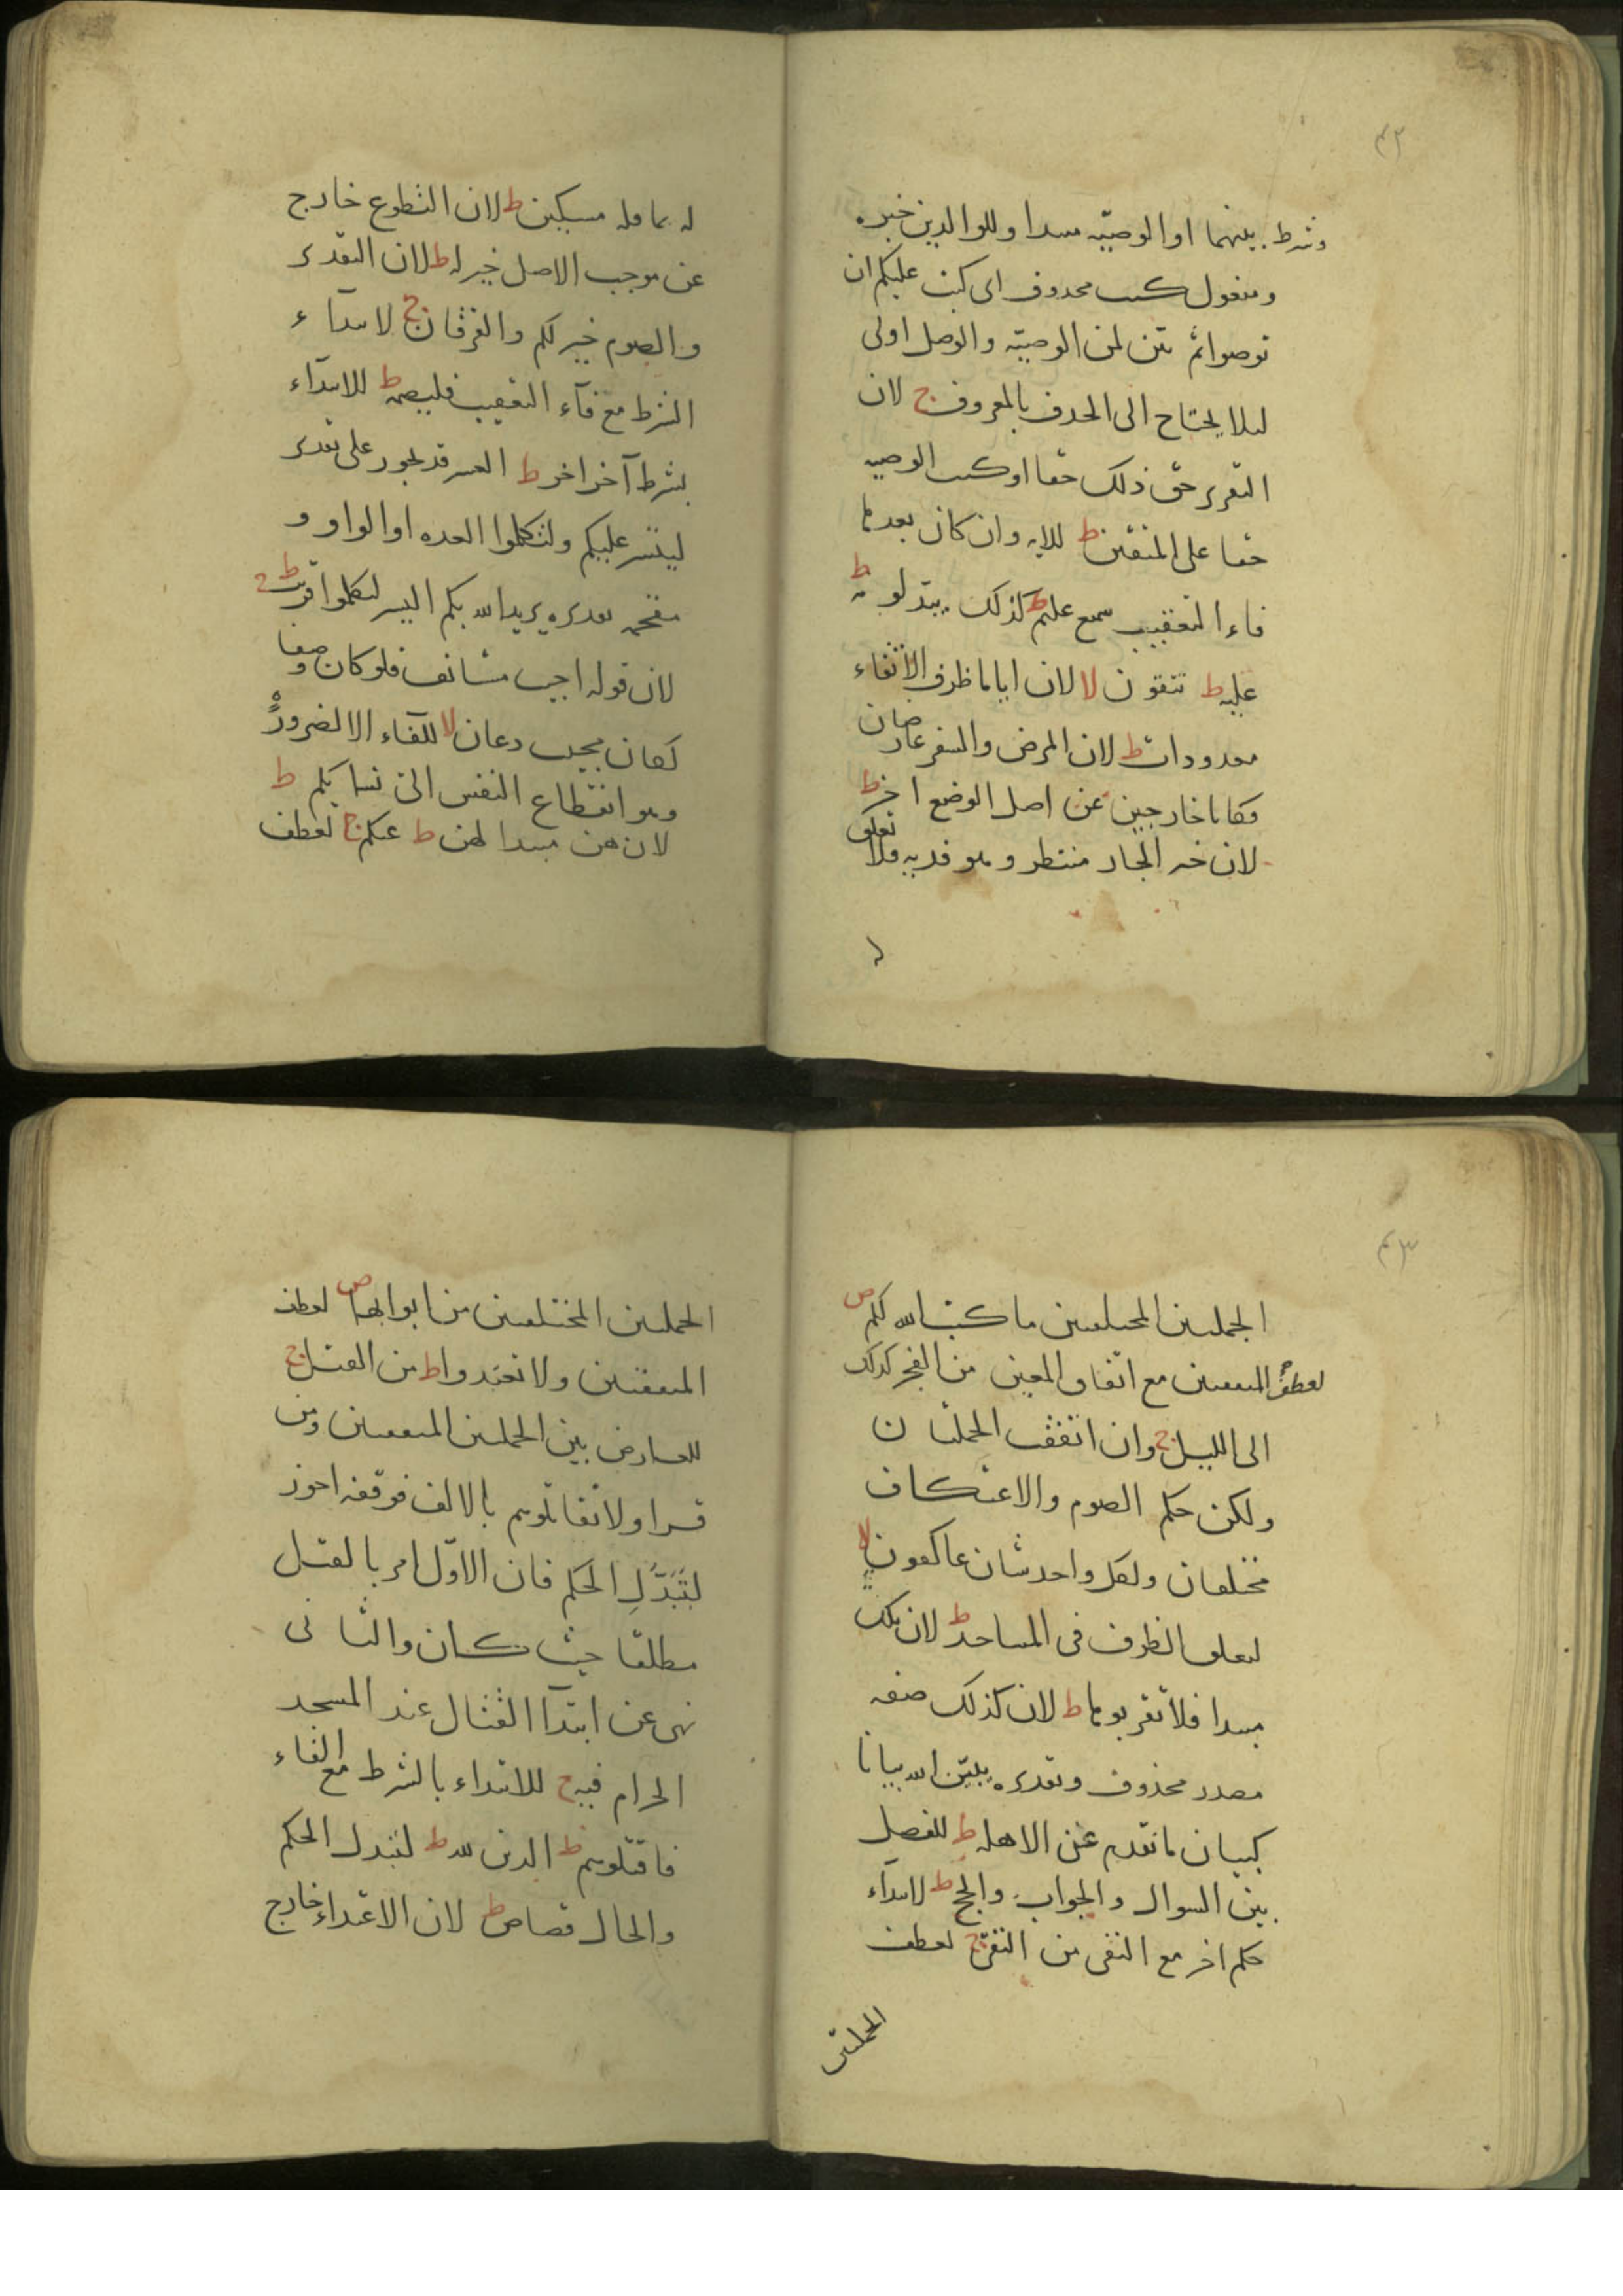 ٤٢
وشرط بينهما او الوصيّه مبتدا وللوالدين خبره
ومفعول كتب محذوف اى كتب عليكم ان
توصوا ثم بيّن لمن الوصيّة والوصل اولى
لىلا يحتاج الى الحذف بالمعروف ج لان
التقرير حق ذلك حقا او كتب الوصيه
حقا على المتقين ط للايه وان كان بعدها
فاء التعقيب سميع عليم ط كذلك يبدلونه ط
عليه ط تتقون لا لان اياما ظرف الاتقاء
معدودات ط لان المرض والسفر عارضان
فكانا خارجين عن اصل الوضع اخر ط
لان خبر الجار منتظر وهو فديه فلا تعلق
له
له بما قبله مسكين ط لان التطوع خارج
عن موجب الاصل خير له ط لان التقدير
والصوم خير لكم والفرقان ج لابتداء
الشرط مع فآء التعقيب فليصمه ط للابتداء
بشرط آخر اخر ط العسر قد يجوز على تقدير
ليتسر عليكم ولتكملوا العده او الواو و
مقحمه تقديره يريد الله بكم اليسر لتكملوا قريب ط
لان قوله اجيب مستانف فلو كان وصفا
لكان مجيب دعان لا للفاء الا لضرورةٍ
وهو انقطاع النفس الى نسايكم ط
لان هن مبتدا لهن ط عنكم ج لعطف
٤٣
الجملتين المختلفتين ما كتب الله لكم ص
لعطف المتفقتين مع اتفاق المعنى من الفجر كذلك
الى الليل ج وان اتفقت الجملتان
ولكن حكم الصوم والاعتكاف
مختلفان ولكل واحد شان عاكفون لا
لتعلق الظرف فى المساجد ط لان تلك
مبتدا فلا تقربوها ط لان كذلك صفه
مصدر محذوف وتقديره يبيّن الله بيانا
كبيان ما تقدم عن الاهله ط للفصل
بين السوال والجواب والحج ط لابتداء
حكم اخر مع النفى من اتقى ج لعطف
الجملتين
الجملتين المختلفتين من ابوابها ص لعطف
المتفقتين ولا تعتدوا ط من القتل ج
للعارض بين الجملتين المتفقتين ومن
قرا ولا تقاتلوهم بالالف فوقفه احوز
لِتَبَدُّلِ الحكم فان الاوّل امر بالقتل
مطلقا حيث كان والثانى
نهى عن ابتدآ القتال عند المسجد
الحرام فيه ج للابتداء بالشرط مع الفاء
فاقتلوهم ط الدين لله ط لتبدل الحكم
والحال قصاص ط لان الاعتداء خارج